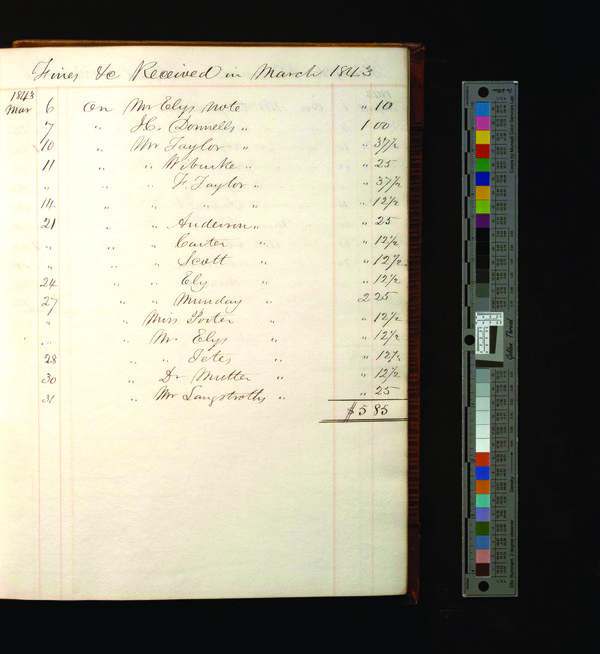 Fines &c Received in March 1843
1843
Mar 6 on Mr Elys Note " 10
7 " H. Donnells " 1 00
10 " Mr Taylor " " 37 1/2
11 " " " " 25
" " " F Taylor " " 37 1/2
14 " " " " " 12 1/2
21 " " Anderson " " 25
" " " Carter " " 12 1/2
" " " Scott " " 12 1/2
24 " " Ely " " 12 1/2
27 " " Munday " 2 25
" " Miss Porter " " 12 1/2
" " Mr. Elys " " 12 1/2
28 " " " " 12 1/2
30 " Dr Mutter " " 12 1/2
31 " Mr Langstroth " " 25
$ 5 85